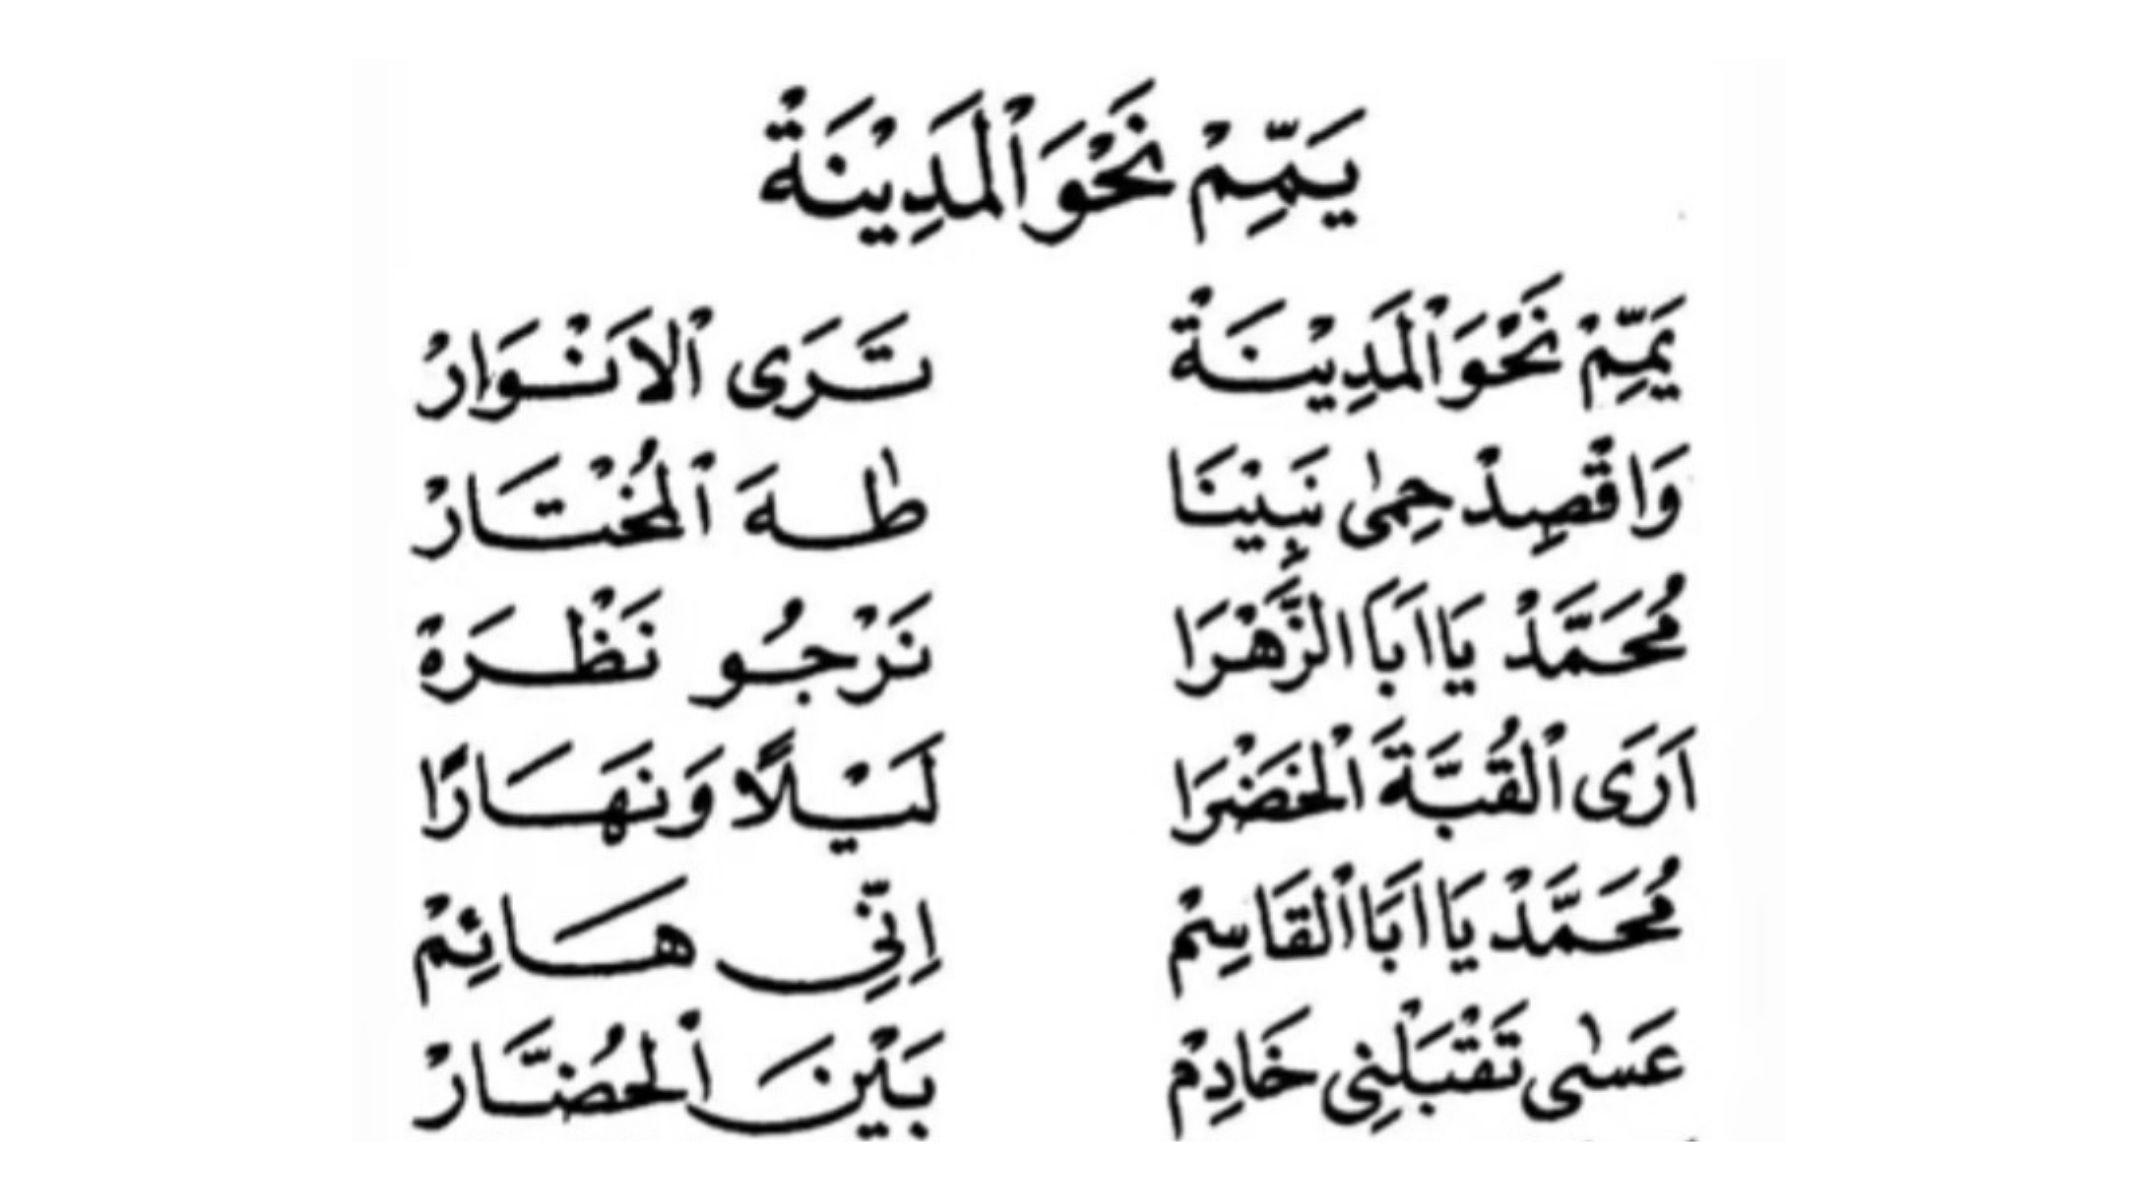 يَمِّمْ نَحْوَ ٱلْمَدِيْنَةْ
يَمِّمْ نَحْوَ ٱلْمَدِيْنَةْ تَرَى ٱلْاَنْوَارُ
وَاقْصِدْ حِمٰى نَبِيْنَا طٰهَ ٱلْمُخْتَارْ
مُحَمَّدْ يَااَبَا الزَّهْرَا نَرْجُو نَظْرَهْ
اَرَى ٱلْقُبَّةَ ٱلْخَضْرَا لَيْلًا وَنَهَارًا
مُحَمَّدْ يَااَبَا ٱلْقَاسِمْ اِنِّى هَائِمْ
عَسٰى تَقْبَلْنِى خَادِمْ بَيْنَ ٱلْحُضَّارْ